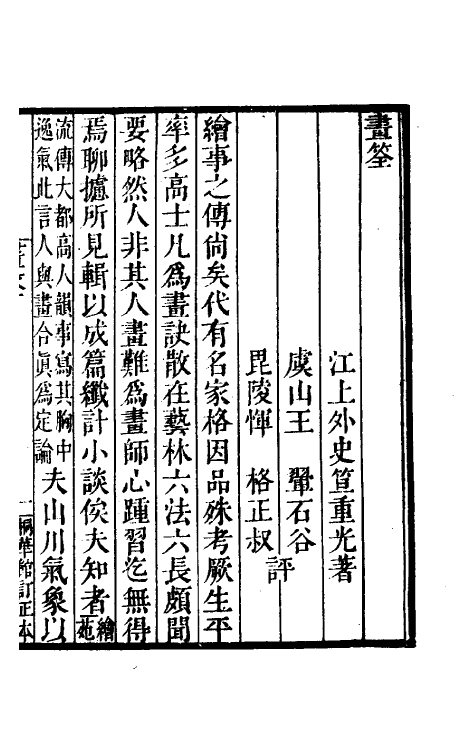 畫筌
江上外史笪重光著
虞山王　翬石谷
毘陵惲　格正叔
評
繪事之傳尚矣代有名家格因品殊考厥生平
率多高士凡為畫訣散在藝林六法六長頗聞
要略然人非其人畫難為畫師心踵習迄無得
焉聊攄所見輯以成篇纖計小談俟夫知者繪苑
流傳大都高人韻事寫其胸中
逸氣此言人與畫合眞為定論
夫山川氣象以
一
桐華館訂正本